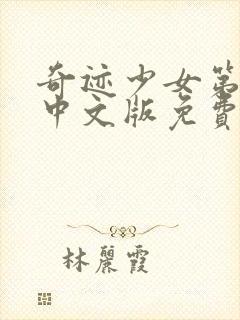 奇迹少女第
中文版免費
林麗霞